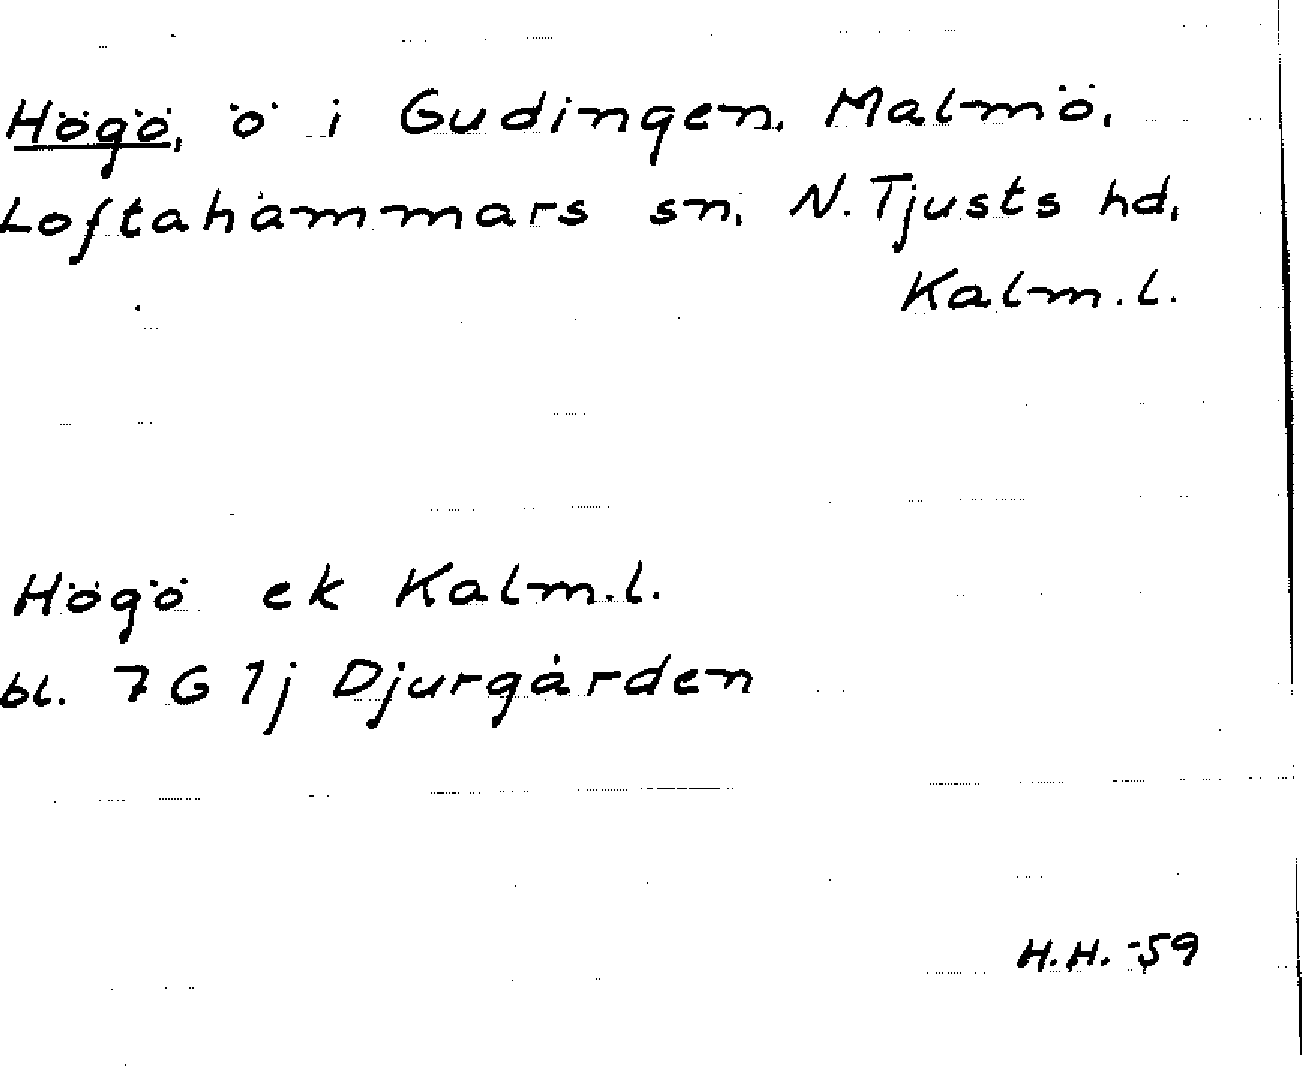 Högö, ö i Gudingen, Malmö,
Loftahammars sn, N. Tjusts hd,
Kalm.l.
Högö ek Kalm.l.
bl. 7 G 1j Djurgården
H.H. -59